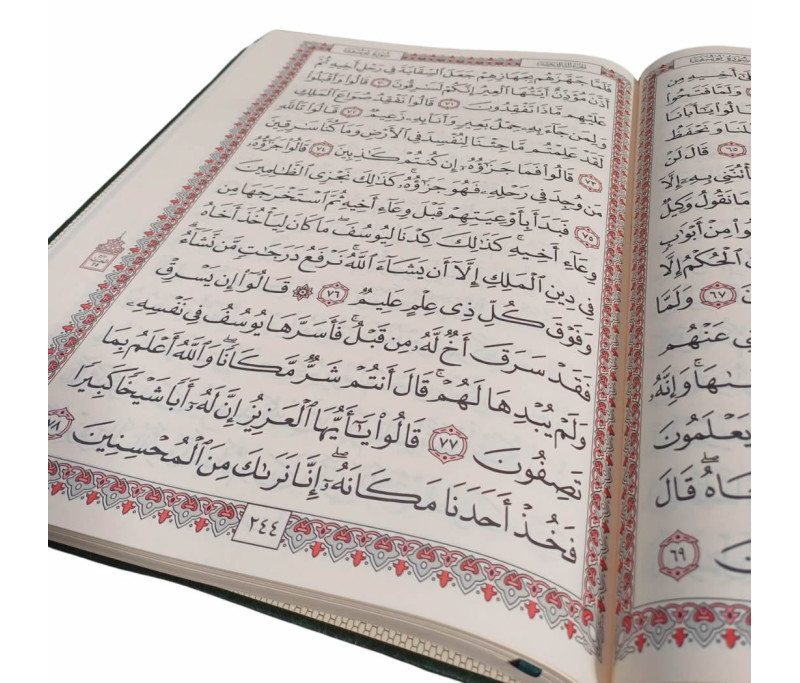 سورة يوسف
أَخِيهِ مِن
وَلَمَّا فَتَحُواْ
قَالُواْ يَـٰٓأَبَانَا
وَنَحۡفَظُ
٦٥ قَالَ لَنۡ
بِهِۦٓ إِلَّآ
مَا نَقُولُ وَكِيلٞ
مِنۡ أَبۡوَٰبٖ
ٱلۡحُكۡمُ إِلَّا
٦٧ وَلَمَّا
عَنۡهُم
وَإِنَّهُۥ
يَعۡلَمُونَ
قَالَ
٦٩
سورة يوسف
فَلَمَّا جَهَّزَهُم بِجَهَازِهِمۡ جَعَلَ ٱلسِّقَايَةَ فِي رَحۡلِ أَخِيهِ ثُمَّ
أَذَّنَ مُؤَذِّنٌ أَيَّتُهَا ٱلۡعِيرُ إِنَّكُمۡ لَسَٰرِقُونَ ٧٠ قَالُواْ وَأَقۡبَلُواْ
عَلَيۡهِم مَّاذَا تَفۡقِدُونَ ٧١ قَالُواْ نَفۡقِدُ صُوَاعَ ٱلۡمَلِكِ
وَلِمَن جَآءَ بِهِۦ حِمۡلُ بَعِيرٖ وَأَنَا۠ بِهِۦ زَعِيمٞ ٧٢ قَالُواْ تَٱللَّهِ
لَقَدۡ عَلِمۡتُم مَّا جِئۡنَا لِنُفۡسِدَ فِي ٱلۡأَرۡضِ وَمَا كُنَّا سَٰرِقِينَ
٧٣ قَالُواْ فَمَا جَزَٰٓؤُهُۥٓ إِن كُنتُمۡ كَٰذِبِينَ ٧٤ قَالُواْ جَزَٰٓؤُهُۥ
مَن وُجِدَ فِي رَحۡلِهِۦ فَهُوَ جَزَٰٓؤُهُۥۚ كَذَٰلِكَ نَجۡزِي ٱلظَّٰلِمِينَ
٧٥ فَبَدَأَ بِأَوۡعِيَتِهِمۡ قَبۡلَ وِعَآءِ أَخِيهِ ثُمَّ ٱسۡتَخۡرَجَهَا مِن
وِعَآءِ أَخِيهِۚ كَذَٰلِكَ كِدۡنَا لِيُوسُفَۖ مَا كَانَ لِيَأۡخُذَ أَخَاهُ
فِي دِينِ ٱلۡمَلِكِ إِلَّآ أَن يَشَآءَ ٱللَّهُۚ نَرۡفَعُ دَرَجَٰتٖ مَّن نَّشَآءُۗ
وَفَوۡقَ كُلِّ ذِي عِلۡمٍ عَلِيمٞ ٧٦ ۞ قَالُوٓاْ إِن يَسۡرِقۡ
فَقَدۡ سَرَقَ أَخٞ لَّهُۥ مِن قَبۡلُۚ فَأَسَرَّهَا يُوسُفُ فِي نَفۡسِهِۦ
وَلَمۡ يُبۡدِهَا لَهُمۡۚ قَالَ أَنتُمۡ شَرّٞ مَّكَانٗاۖ وَٱللَّهُ أَعۡلَمُ بِمَا
تَصِفُونَ ٧٧ قَالُواْ يَـٰٓأَيُّهَا ٱلۡعَزِيزُ إِنَّ لَهُۥٓ أَبٗا شَيۡخٗا كَبِيرٗا
فَخُذۡ أَحَدَنَا مَكَانَهُۥٓۖ إِنَّا نَرَىٰكَ مِنَ ٱلۡمُحۡسِنِينَ ٧٨
٢٤٤